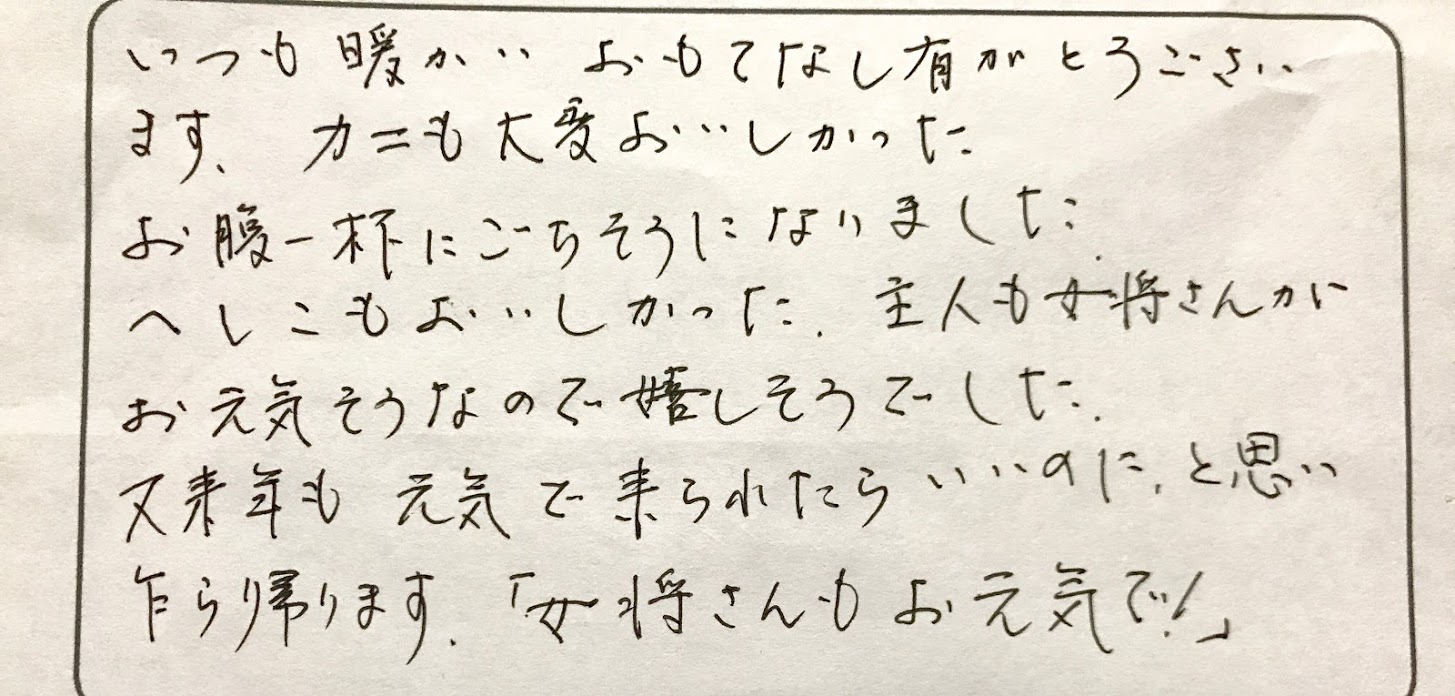 いつも暖かい おもてなし有がとうござい
ます、カニも大変おいしかった
お腹一杯にごちそうになりました.
へしこもおいしかった. 主人も女将さんが
お元気そうなので嬉しそうでした.
又来年も 元気で来られたらいいのに、と思い
乍ら帰ります.「女将さんもお元気で!」